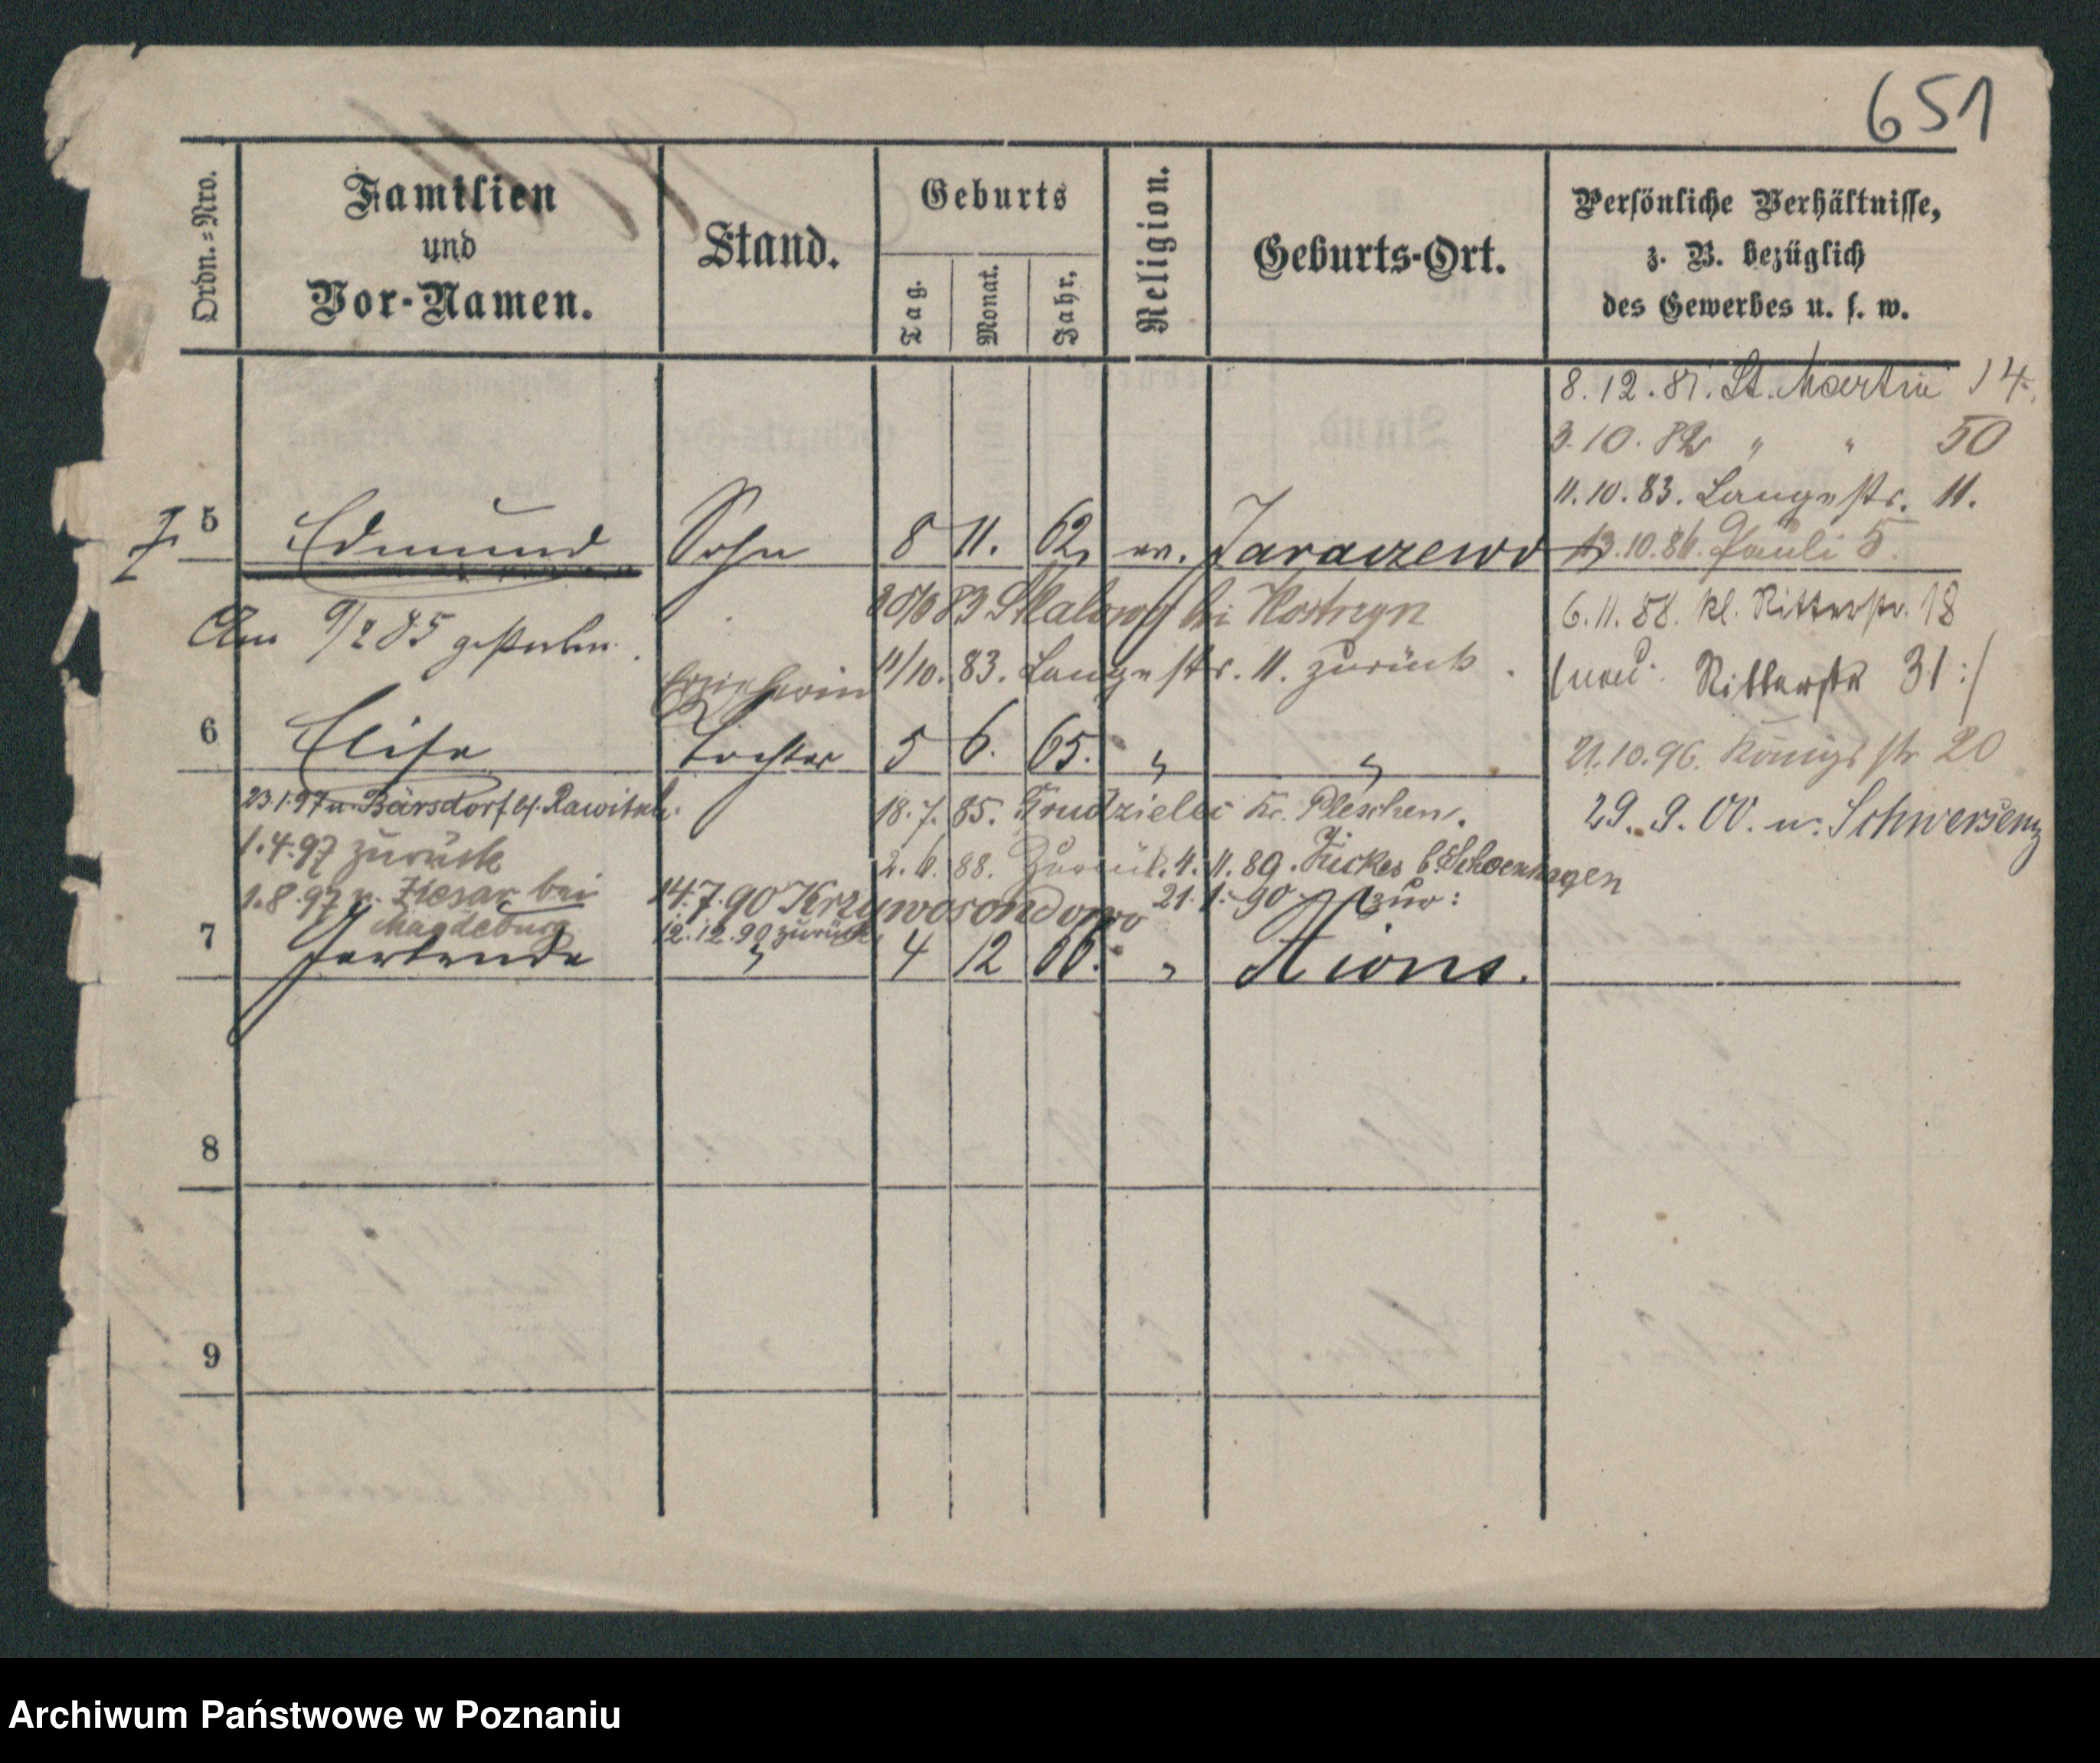 651
Ordn.=Nro.
Familien
und
Vor-Namen.
Stand.
Geburts
Tag.
Monat.
Jahr.
Religion.
Geburts-Ort.
Persönliche Verhältnisse,
z. B. bezüglich
des Gewerbes u. s. w.
8.12.81. St. Martin 14.
3.10.82 " " 50
11.10.83. Langestr. 11.
5 Edmund Sohn 8 11. 62 ev. Jaraczewo
13.10.86. Pauli 5.
Am 9/2 85 gestorben.
83 bei Kostrzyn
6.11.88. kl. Ritterstr. 18
11/10.83. Langestr. 11. zurück.
Ritterstr 31 :/
Erzieherin
6 Elise Tochter 5 6. 65. " "
21.10.96. Königsstr 20
23.1.97 n. Bärsdorf bf. Rawitsch.
18.7.85. Grudzielec Kr. Pleschen.
29.9.00. n. Schwersenz
1.4.97 zurück
2. 88. Zurück. 4.11.89. b. Schoenhagen
1.8.97 n. Ziesar bei
Magdeburg
14.7.90 Krzywosondowo
21.1.90 zur:
12.12.90 zurück
7 Gertrude " 4 12 66. " Xions.
8
9
Archiwum Państwowe w Poznaniu